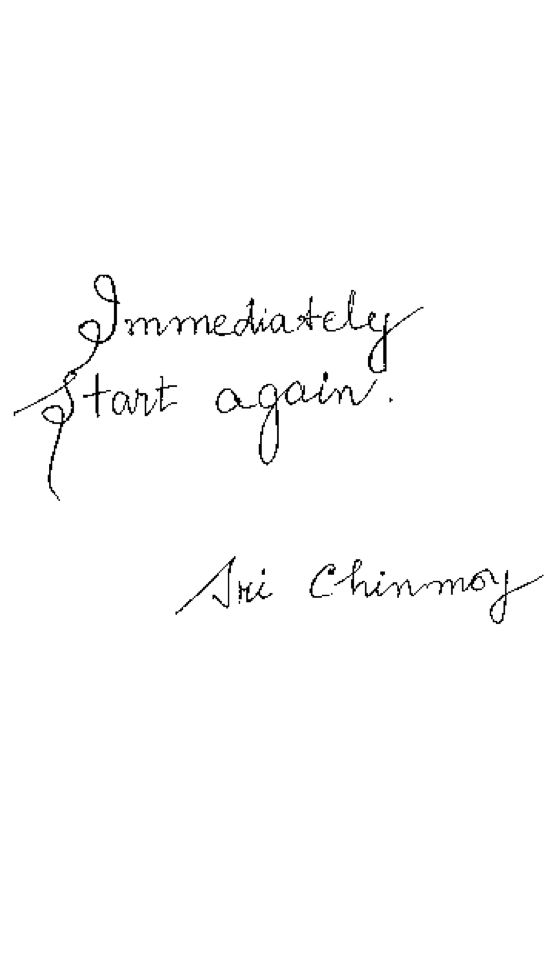 Immediately
Start again.
Sri Chinmoy